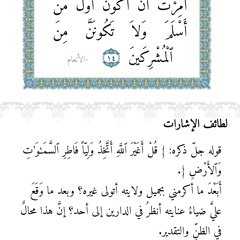 أُمِرْتُ أَنْ أَكُونَ أَوَّلَ مَنْ
أَسْلَمَ وَلَا تَكُونَنَّ مِنَ
ٱلْمُشْرِكِينَ ١٤ -الأنعام
لطائف الإشارات
قوله جلّ ذكره: ﴿ قُلْ أَغَيْرَ ٱللَّهِ أَتَّخِذُ وَلِيّاً فَاطِرِ ٱلسَّمَٰوَٰتِ
وَٱلأَرْضِ ﴾.
أَبَعْدَ ما أكرمني بجميل ولايته أتولى غيره؟ وبعد ما وَقَعَ
عليَّ ضياءُ عنايته أنظرُ في الدارين إلى أحد؟ إنَّ هذا محالٌ
في الظنِّ والتقدير.